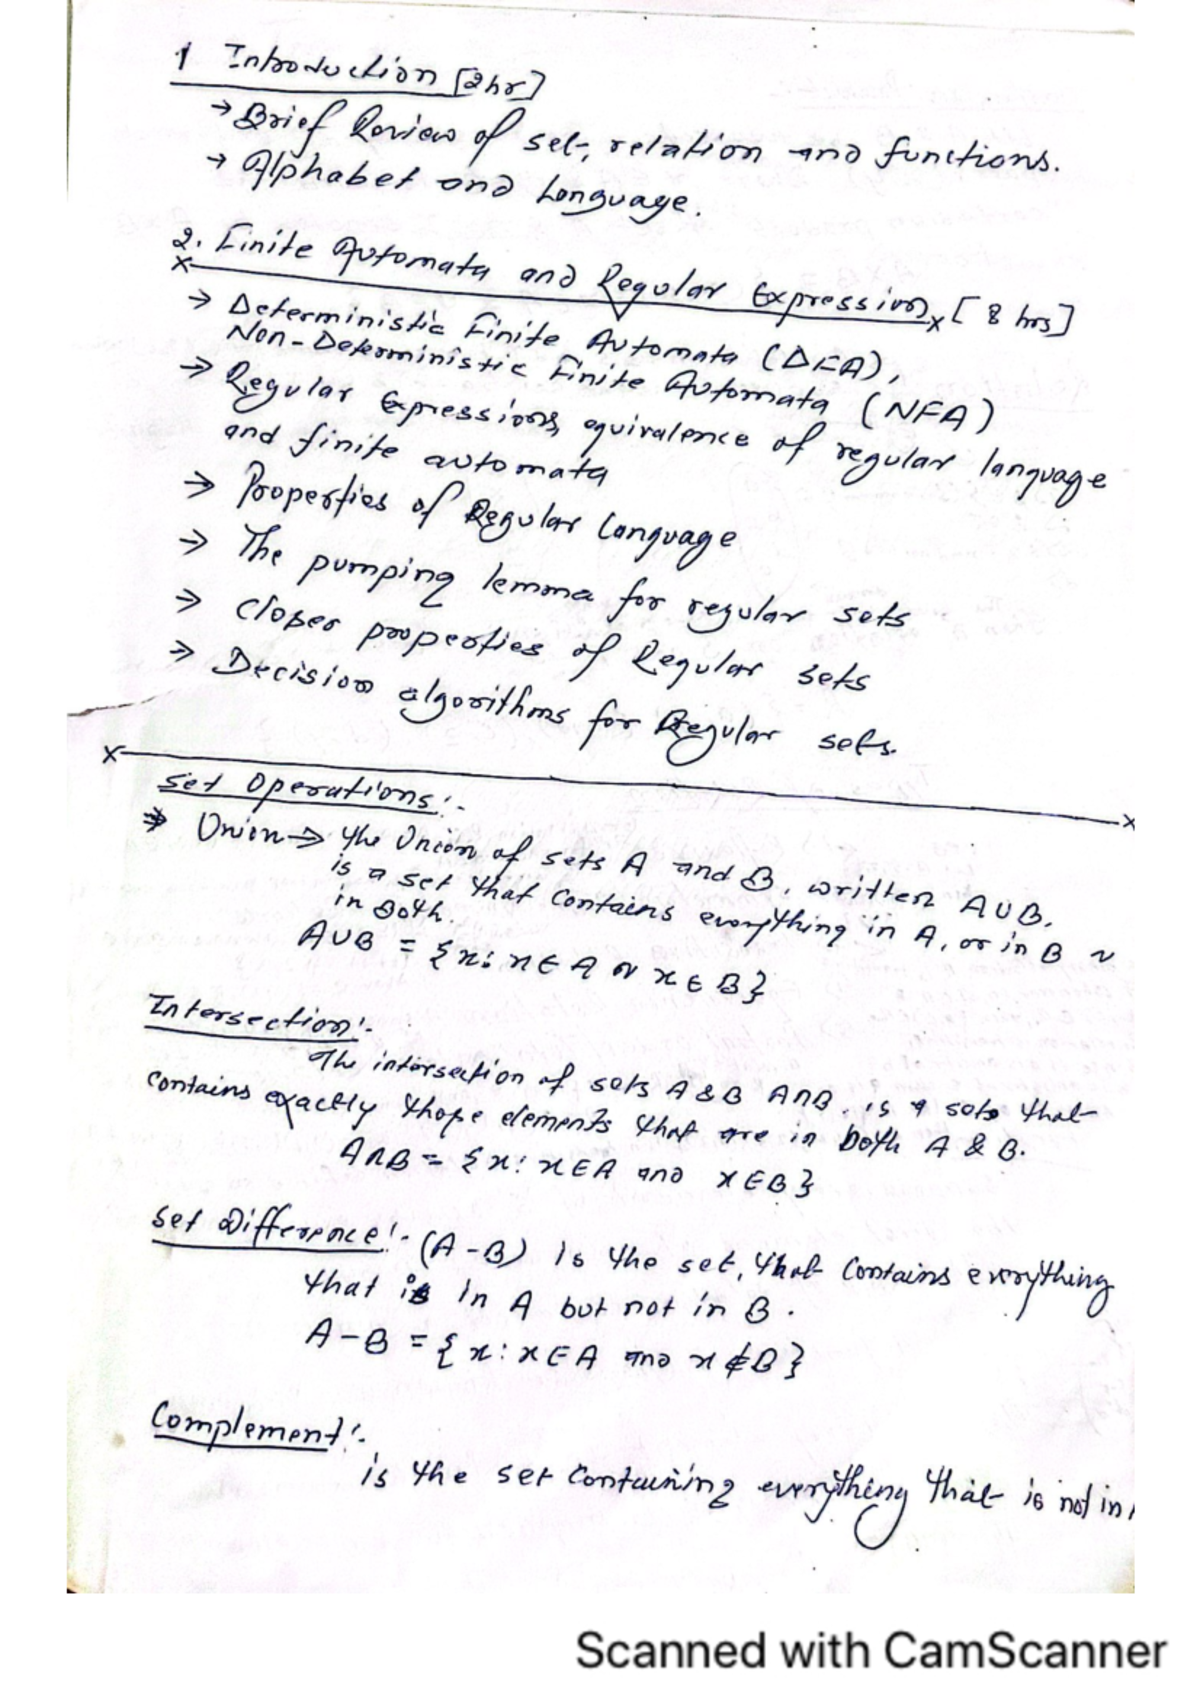 1 Introduction [2hr]
→ Brief Review of set, relation and functions.
→ Alphabet and Language.
2. Finite Automata and Regular Expression [8 hrs]
→ Deterministic Finite Automata (DFA),
Non-Deterministic Finite Automata (NFA)
→ Regular Expressions, equivalence of regular language
and finite automata
→ Properties of Regular Language
→ The pumping lemma for regular sets
→ Closer properties of Regular sets
→ Decision algorithms for Regular sets.
Set Operations:-
→ Union → The Union of sets A and B, written A∪B.
is a set that contains everything in A, or in B or
in both.
A∪B = {x: x∈A or x∈B}
Intersection:-
The intersection of sets A & B A∩B. is a sets that
contains exactly those elements that are in both A & B.
A∩B = {x: x∈A and x∈B}
Set Difference:- (A-B) is the set, that contains everything
that is in A but not in B.
A-B = {x: x∈A and x∉B}
Complement:-
is the set containing everything that is not in
Scanned with CamScanner